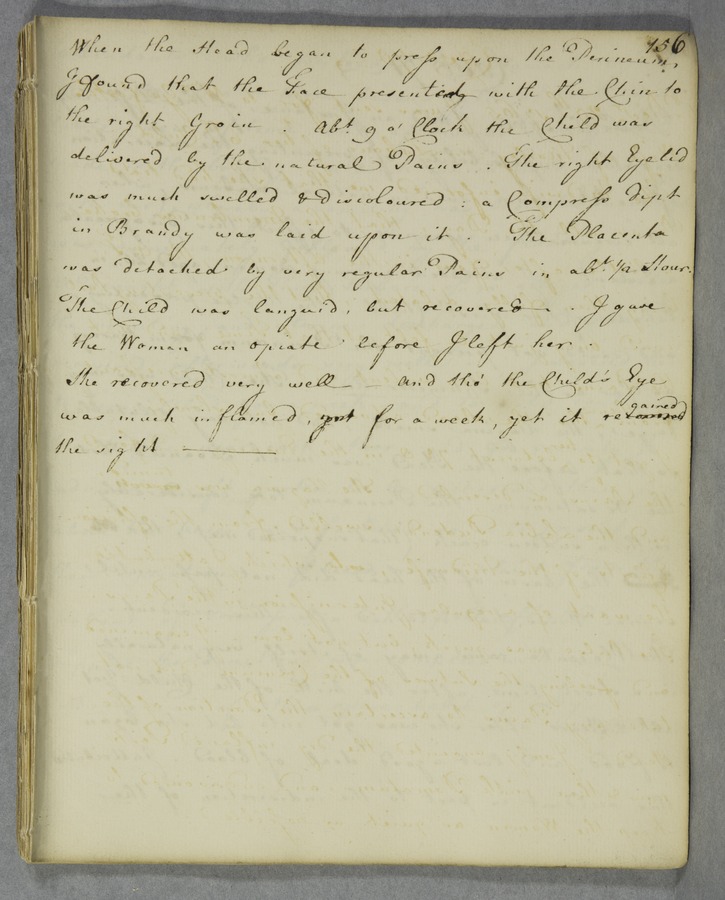 156
When the Head began to press upon the Perineum,
I found that the Face presented with the Chin to
the right Groin. Abt. 9 o'Clock the Child was
delivered by the natural Pains. The right Eyelid
was much swelled & discoloured: a Compress dipt
in Brandy was laid upon it. The Placenta
was detached by very regular Pains in abt. 1/2 Hour.
The Child was languid, but recovered. I gave
the Woman an opiate before I left her.
She recovered very well – and tho' the Child's Eye
was much inflamed, for a week, yet it regained
the sight —